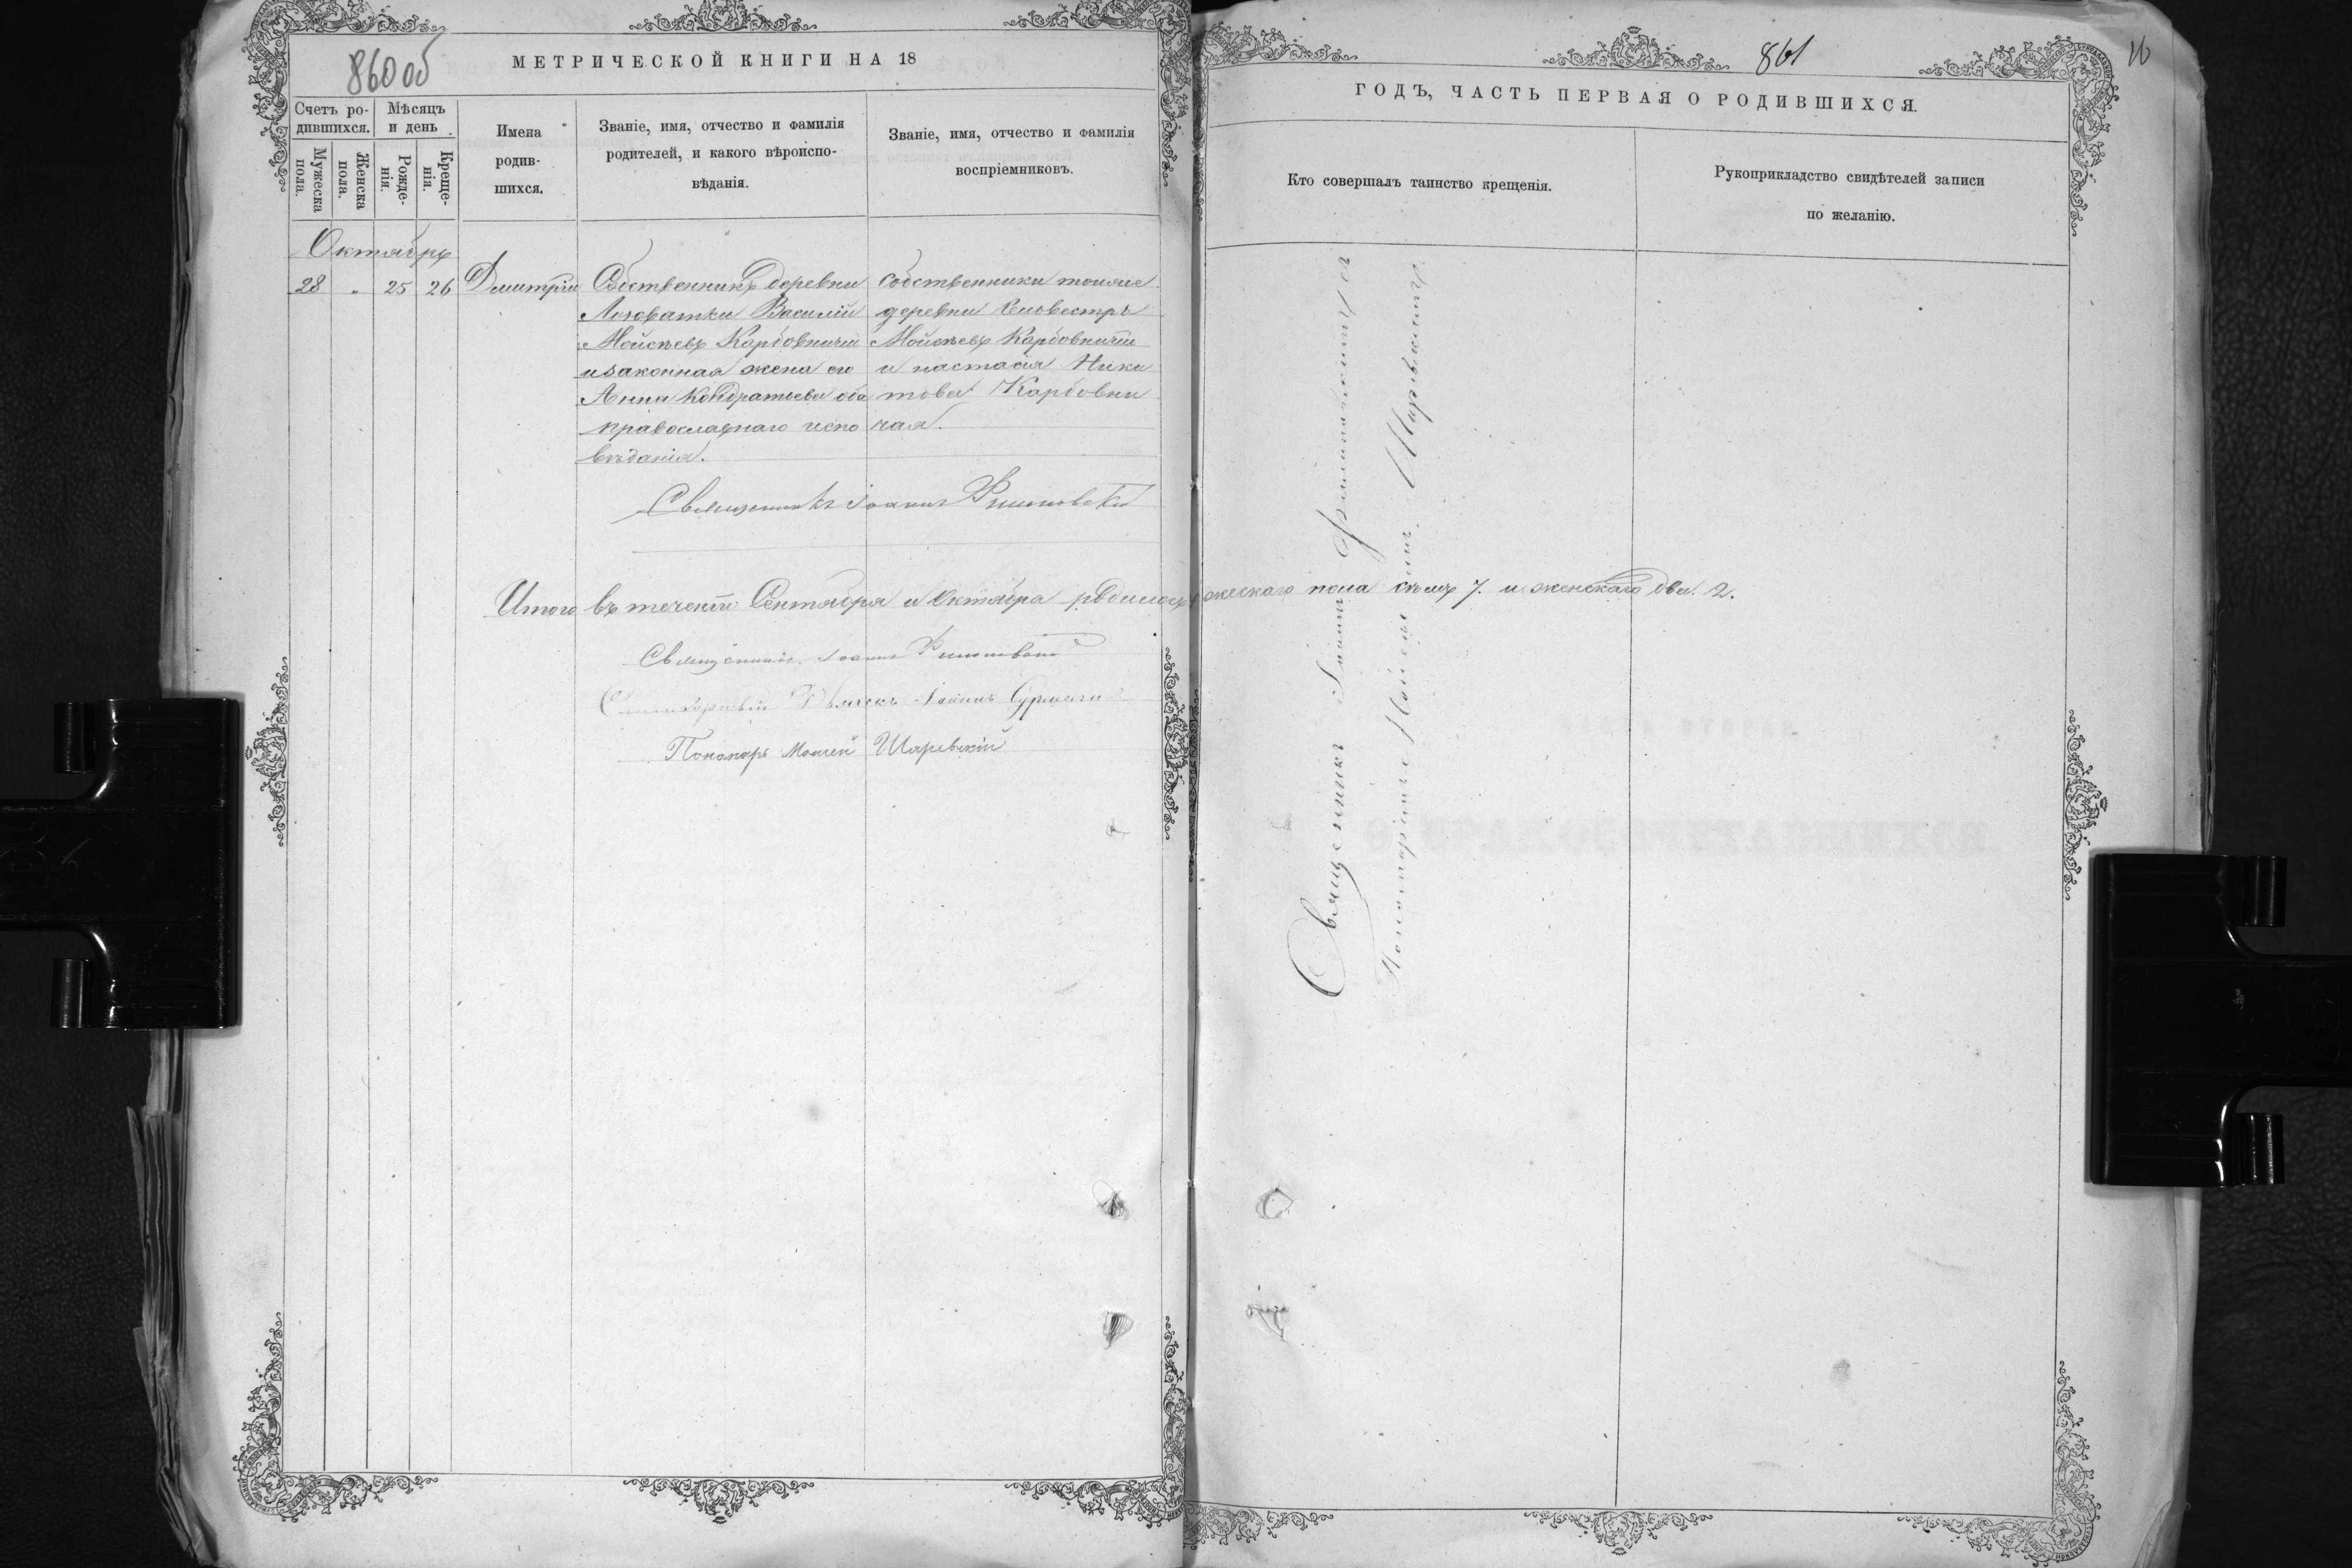 860 об
МЕТРИЧЕСКОЙ КНИГИ НА 18
Счетъ ро-
дившихся.
Мѣсяцъ
и день
Мужеска
пола.
Женска
пола.
Рожде-
нія.
Креще-
нія.
Имена
родив-
шихся.
Званіе, имя, отчество и фамилія
родителей, и какого вѣроиспо-
вѣданія.
Званіе, имя, отчество и фамилія
воспріемниковъ.
Октябрь
28 " 25 26 Дмитрій
Собственникъ деревни
Лозоватки Василій
Мойсѣевъ Карбовничій
и законная жена его
Анна Кондратьева оба
православнаго испо
вѣданія.
Собственники тоияже
деревни Силвестръ
Мойсѣевъ Карбовничій
и настасія Ники
това Карбовни
чая.
Священникъ Іоаннъ
Итого въ теченіи Сентября и Октября родилось
Священникъ Іоаннъ
Дьячекъ Іоаннъ
Пономарь Моисей Ширевскій
861
16
ГОДЪ, ЧАСТЬ ПЕРВАЯ О РОДИВШИХСЯ.
Кто совершалъ таинство крещенія.
Рукоприкладство свидѣтелей записи
по желанію.
Священникъ Іоаннъ
Пономаремъ Мойсеемъ Ширевскимъ
жескаго пола семь 7. и женскаго два. 2.